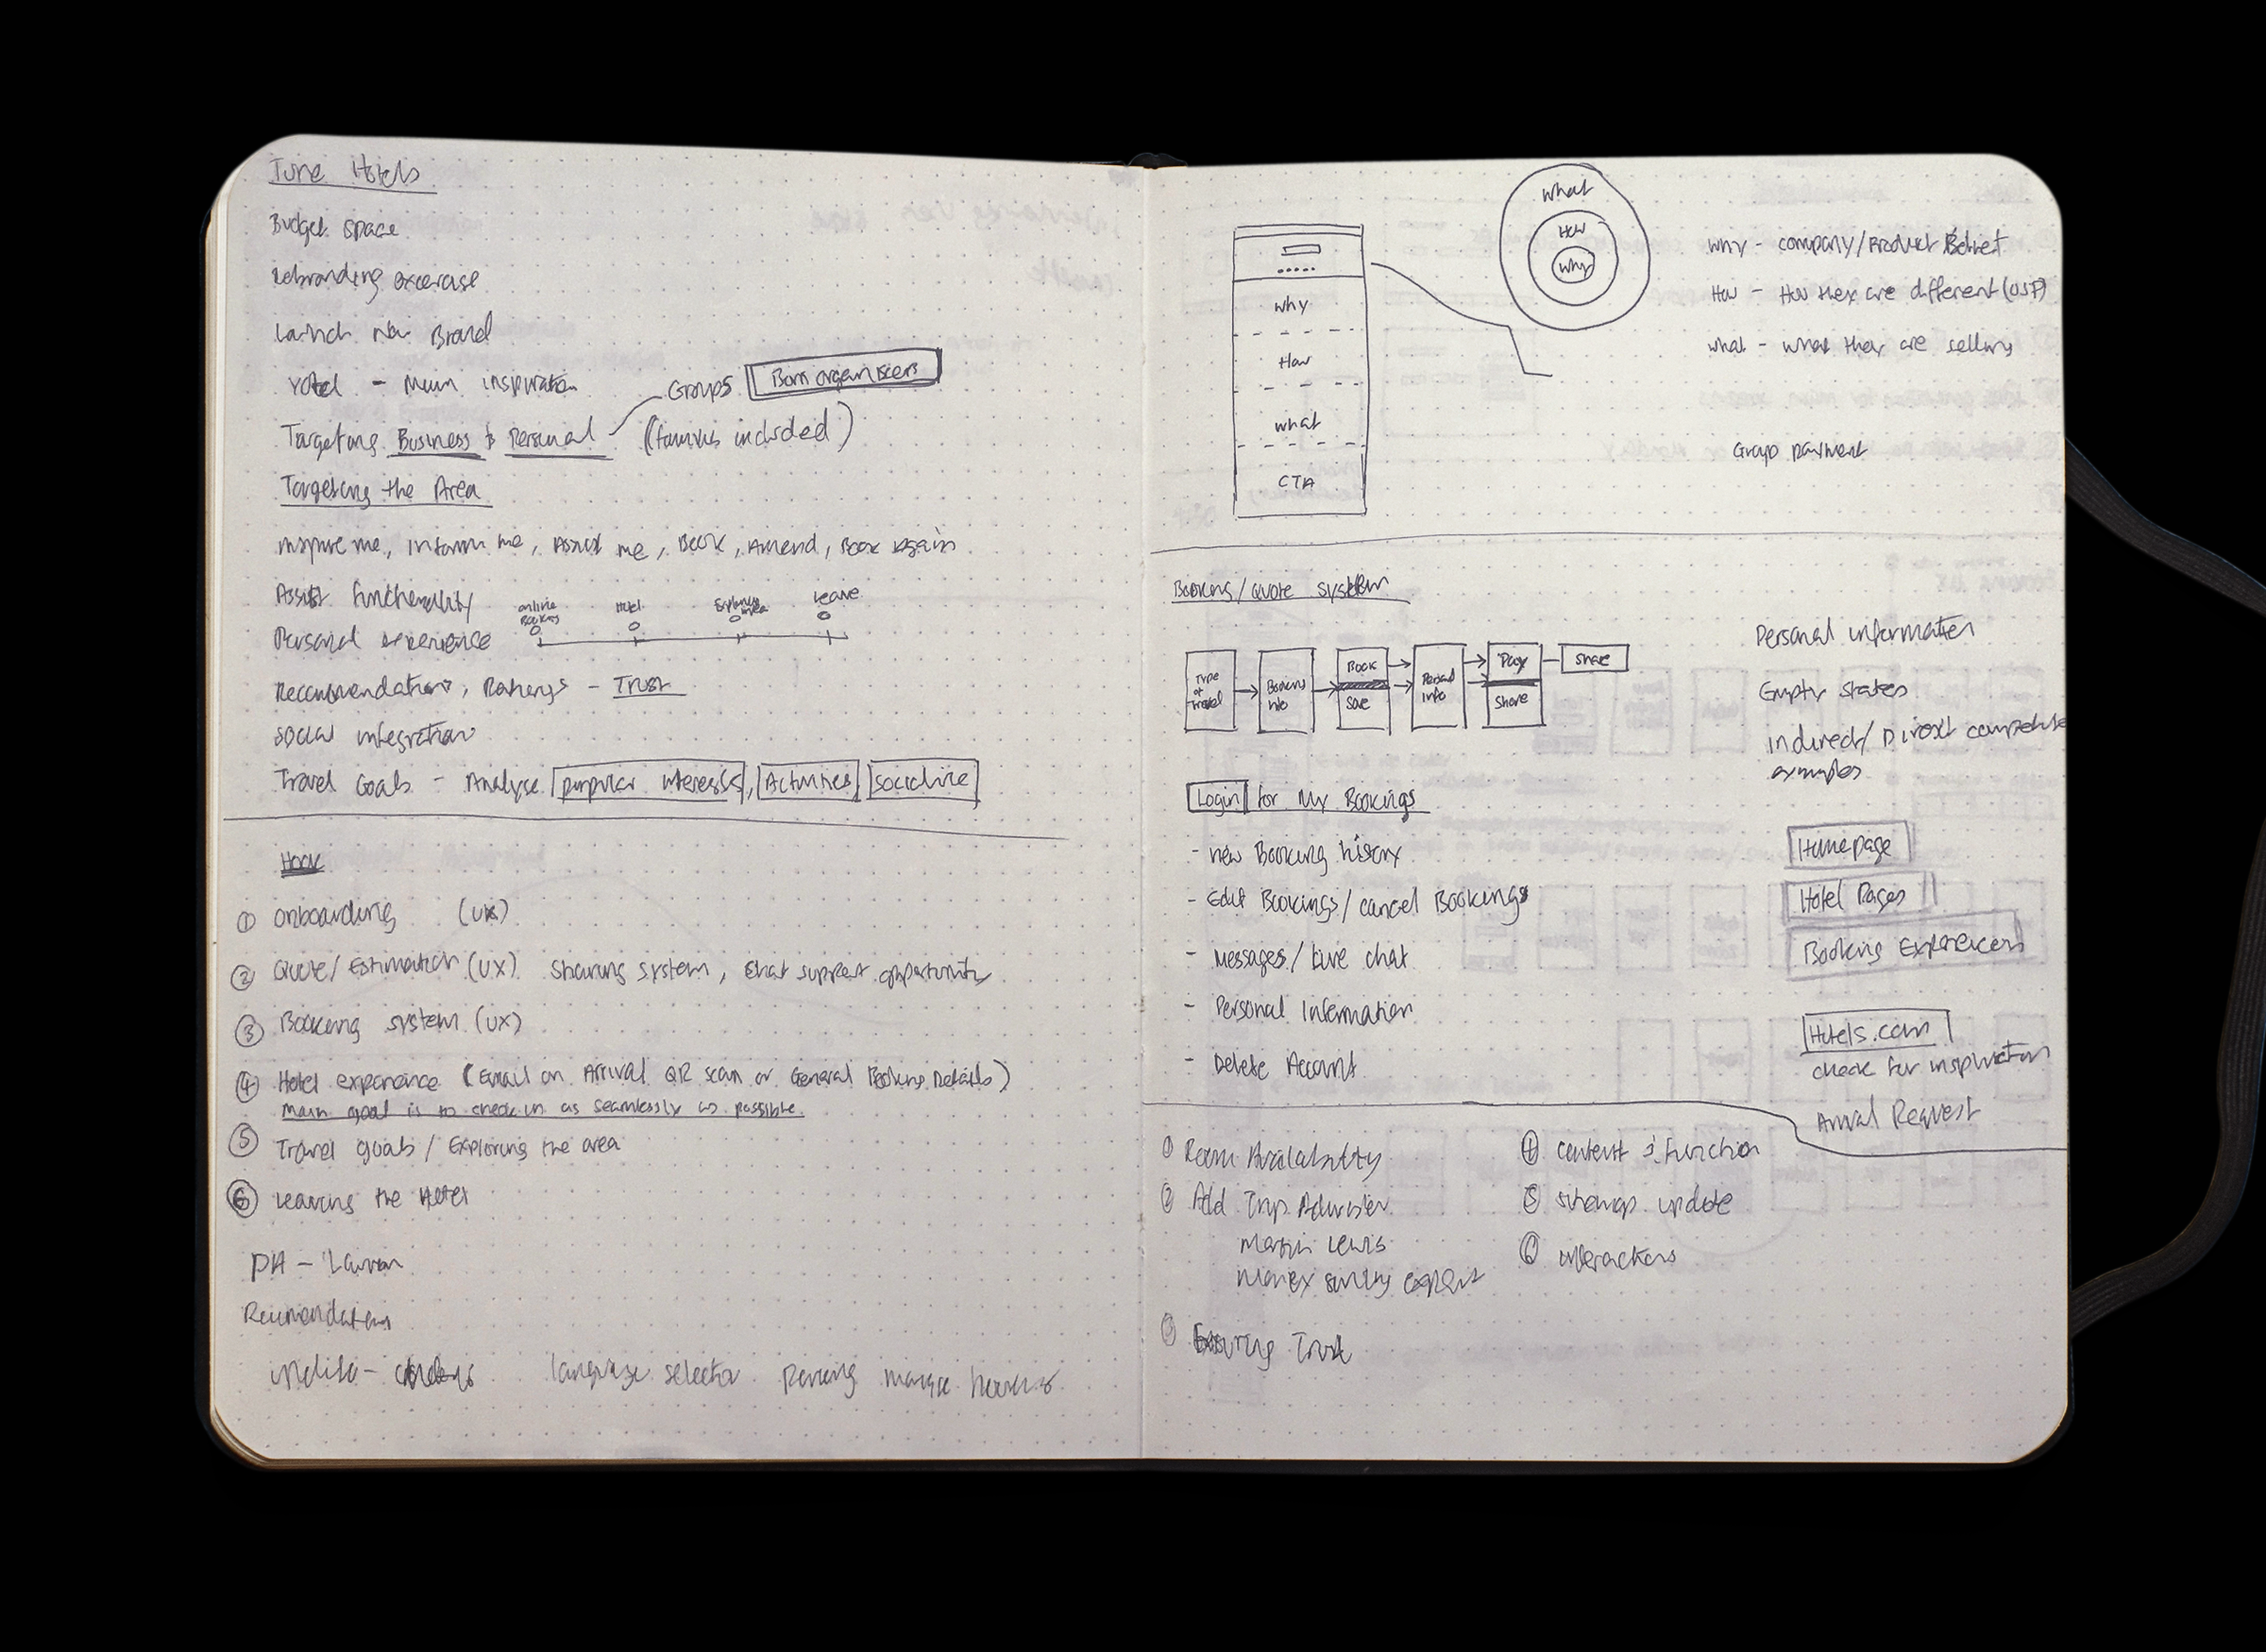 Tune Hotels
Budget space
Rebranding excercise
Launch New Brand
Yotel - Main inspiration
Groups Born organisers
Targeting Business & Personal (families included)
Targeting the Area
Inspire me, Inform me, Assist me, Book, Amend, Book Again
Assist functionality
Online Booking
Hotel
Explore area
Leave
Personal experience
Recommendations, Ratings - Trust
Social integration
Travel Goals - Analyse popular interests, Activities socialise
Hook
① Onboarding (UX)
② Quote/Estimation (UX) Sharing system, Chat support opportunity
③ Booking system (UX)
④ Hotel experience (Email on Arrival QR scan or General Booking Details)
Main goal is to check in as seamlessly as possible
⑤ Travel goals / Exploring the area
⑥ Leaving the Hotel
PA - Lauren
language selector
What
How
Why
Why
How
What
CTA
Why - company/Product Belief
How - How they are different (USP)
What - What they are selling
Group payment
Booking/Quote system
Type of Travel
Booking info
Book
Save
Personal info
Pay
Share
Share
Personal information
Empty states
Indirect/Direct
examples
Login for My Bookings
- New Booking history
- Edit Bookings/cancel Bookings
- Messages/Live chat
- Personal Information
- Delete Account
Homepage
Hotel Pages
Booking
Hotels.com
check for inspiration
Arrival Request
① Room Availability
② Add Trip Advisor
Martin Lewis
Money saving expert
③ Ensuring Trust
④ content & function
⑤ sitemap update
⑥ interactions